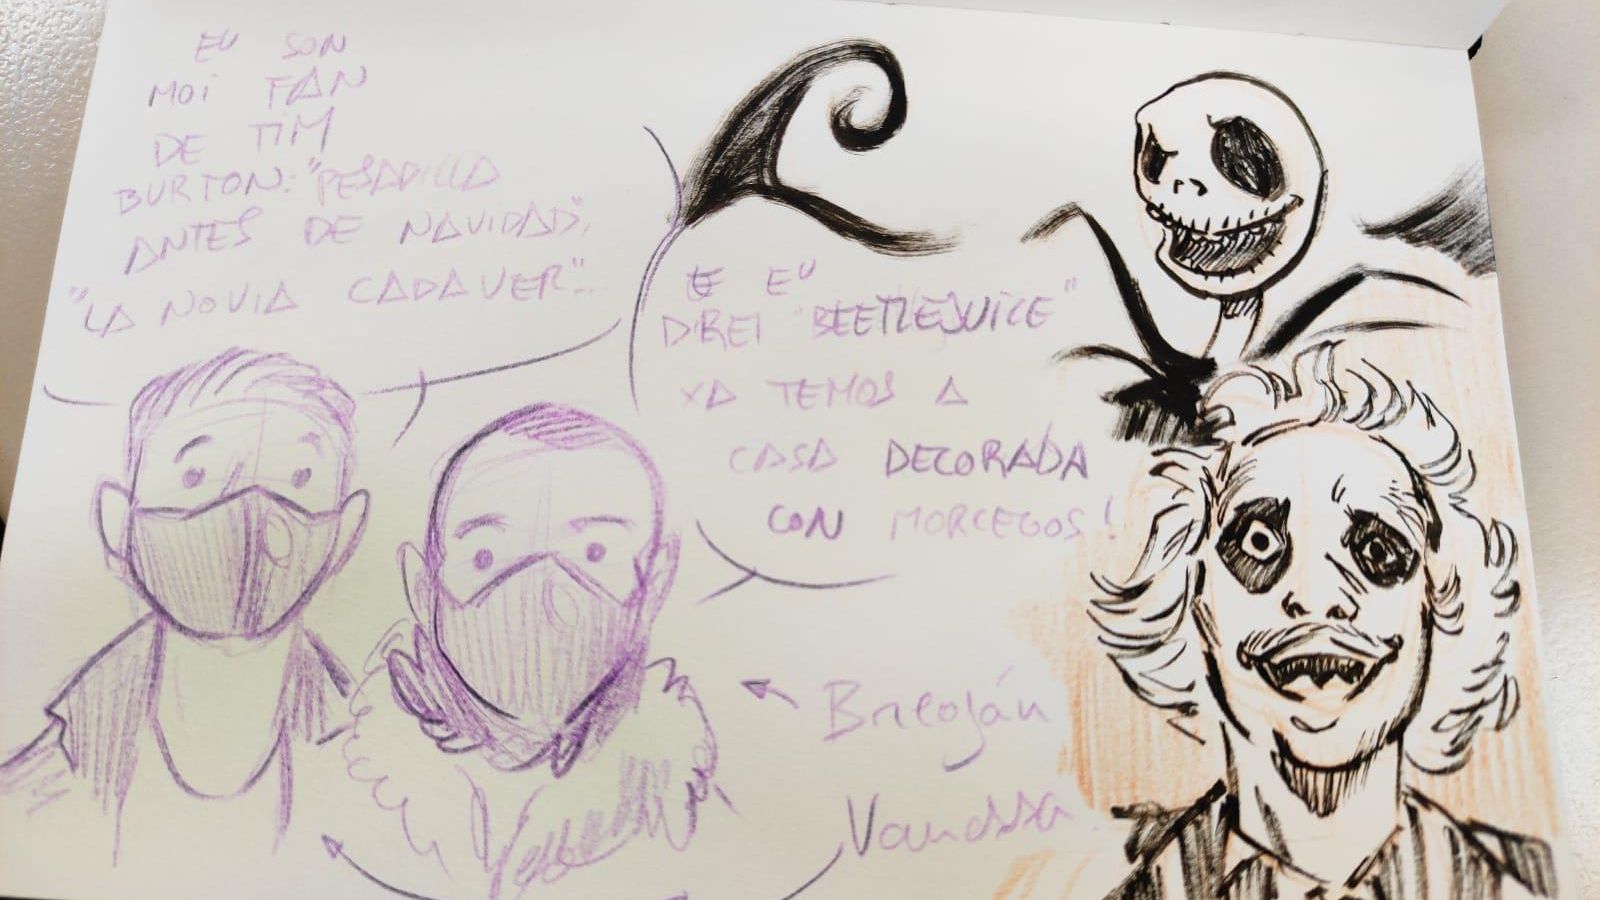 EU SON
MOI FAN
DE TIM
BURTON: "PESADILLA
ANTES DE NAVIDAD",
"LA NOVIA CADAVER"...
E EU
DIREI "BEETLEJUICE"
XA TEMOS A
CASA DECORADA
CON MORCEGOS!
Vanessa